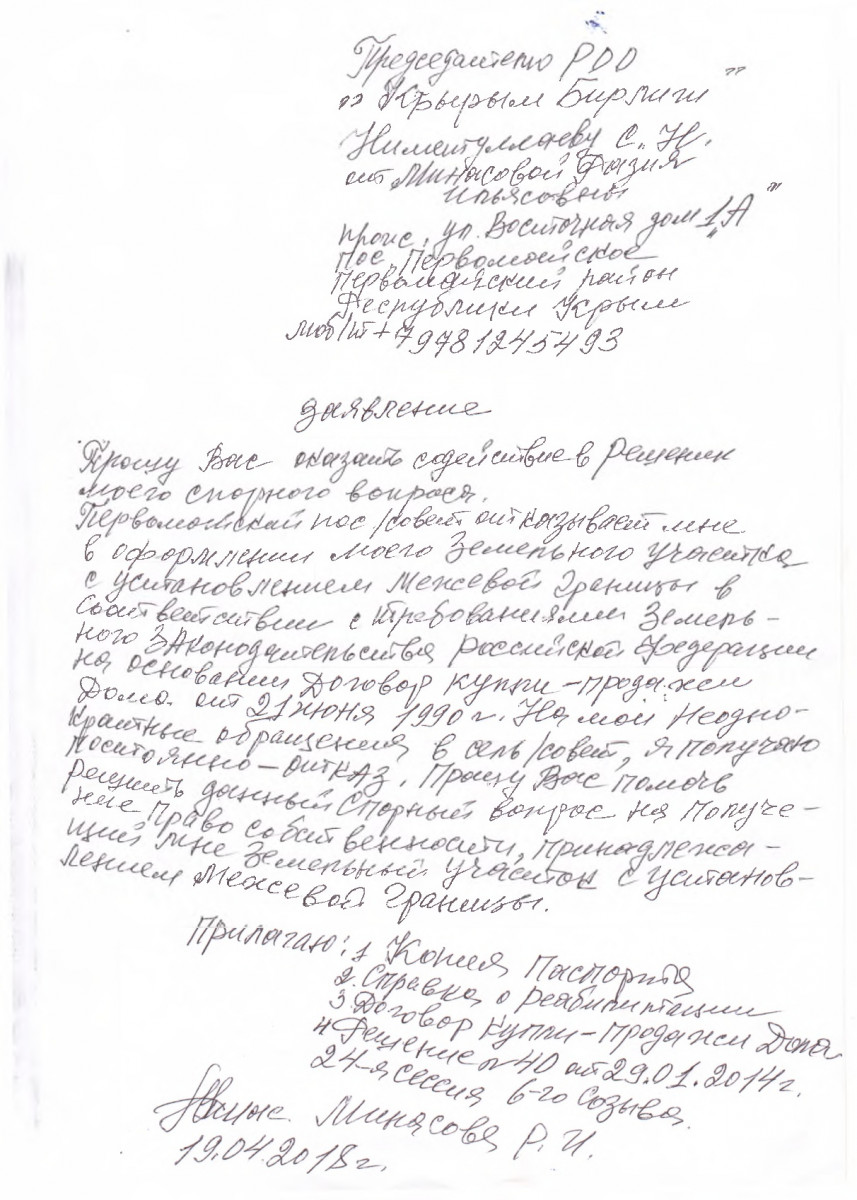 Председателю РОО
"Крырым Бирлиги"
Ниметуллаеву С. Н.
от Минасовой Фазия
Ильясовны
прож, ул. Восточная дом 1 "А"
пос, Первомайское
Первомайский район
Республики Крым
моб/т +79781245493
заявление
Прошу Вас оказать содействие в Решении
моего спорного вопроса.
Первомайский пос/совет отказывает мне
в оформлении моего Земельного участка
с установлением Межевой Границы в
соответствии с требованиями Земель-
ного ЗАконодательства Российской Федерации
на основании Договор купли-продажи
Дома от 21 июня 1990 г. На мои Неодно-
кратные обращения в сель/совет, я получаю
постоянно - оиткАз. Прошу Вас помочь
решить данный Спорный вопрос на получе-
ние право собственности, принадлежа-
щий мне Земельный участок с установ-
лением Межевой Границы.
Прилагаю: 1 Копия Паспорта
2. Справка о реабилитации
3 Договор купли-продажи Дома
4 Решение №40 от 29.01.2014г.
24-я сессия 6-го Созыва.
Минасова Р. И.
19.04.2018г.